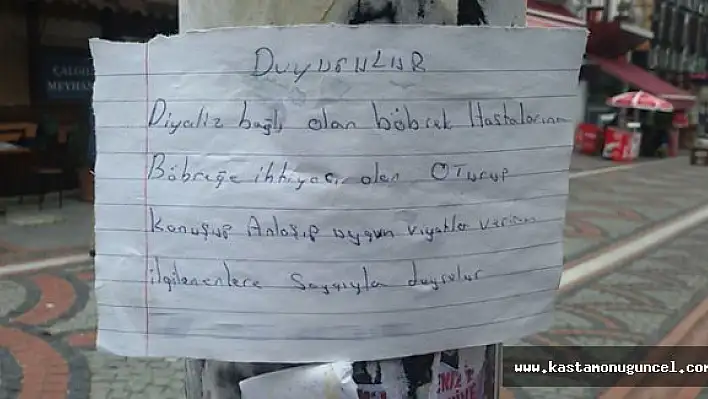 DUYURULUR
Diyaliz bağlı olan böbrek Hastalarına
Böbreğe ihtiyacı olan OTurup
Konuşup Anlaşıp uygun viyatlar verilir
ilgilenenlere Saygıyla duyrulur
ÇALGILI
MEYHANE
www.kastamonuguncel.com